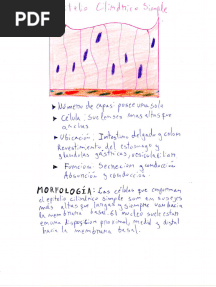 PDF
Epitelio Cilíndrico Simple
➤ Número de capas: posee una sola
➤ Célula: Suelen ser mas altas que anchas
➤ Ubicación: Intestino delgado y colon
Revestimiento del estomago y
glandulas gástricas, vesicula biliar.
➤ Funcion: Secrecion y conducción
Absorción y conducción.
MORFOLOGÍA: Las células que conforman
el epitelio cilíndrico simple son
más altas que largas y siempre van hacia
la membrana basal. El núcleo suele estar
en una disposicion proximal, medial y distal
hacia la membrana basal.